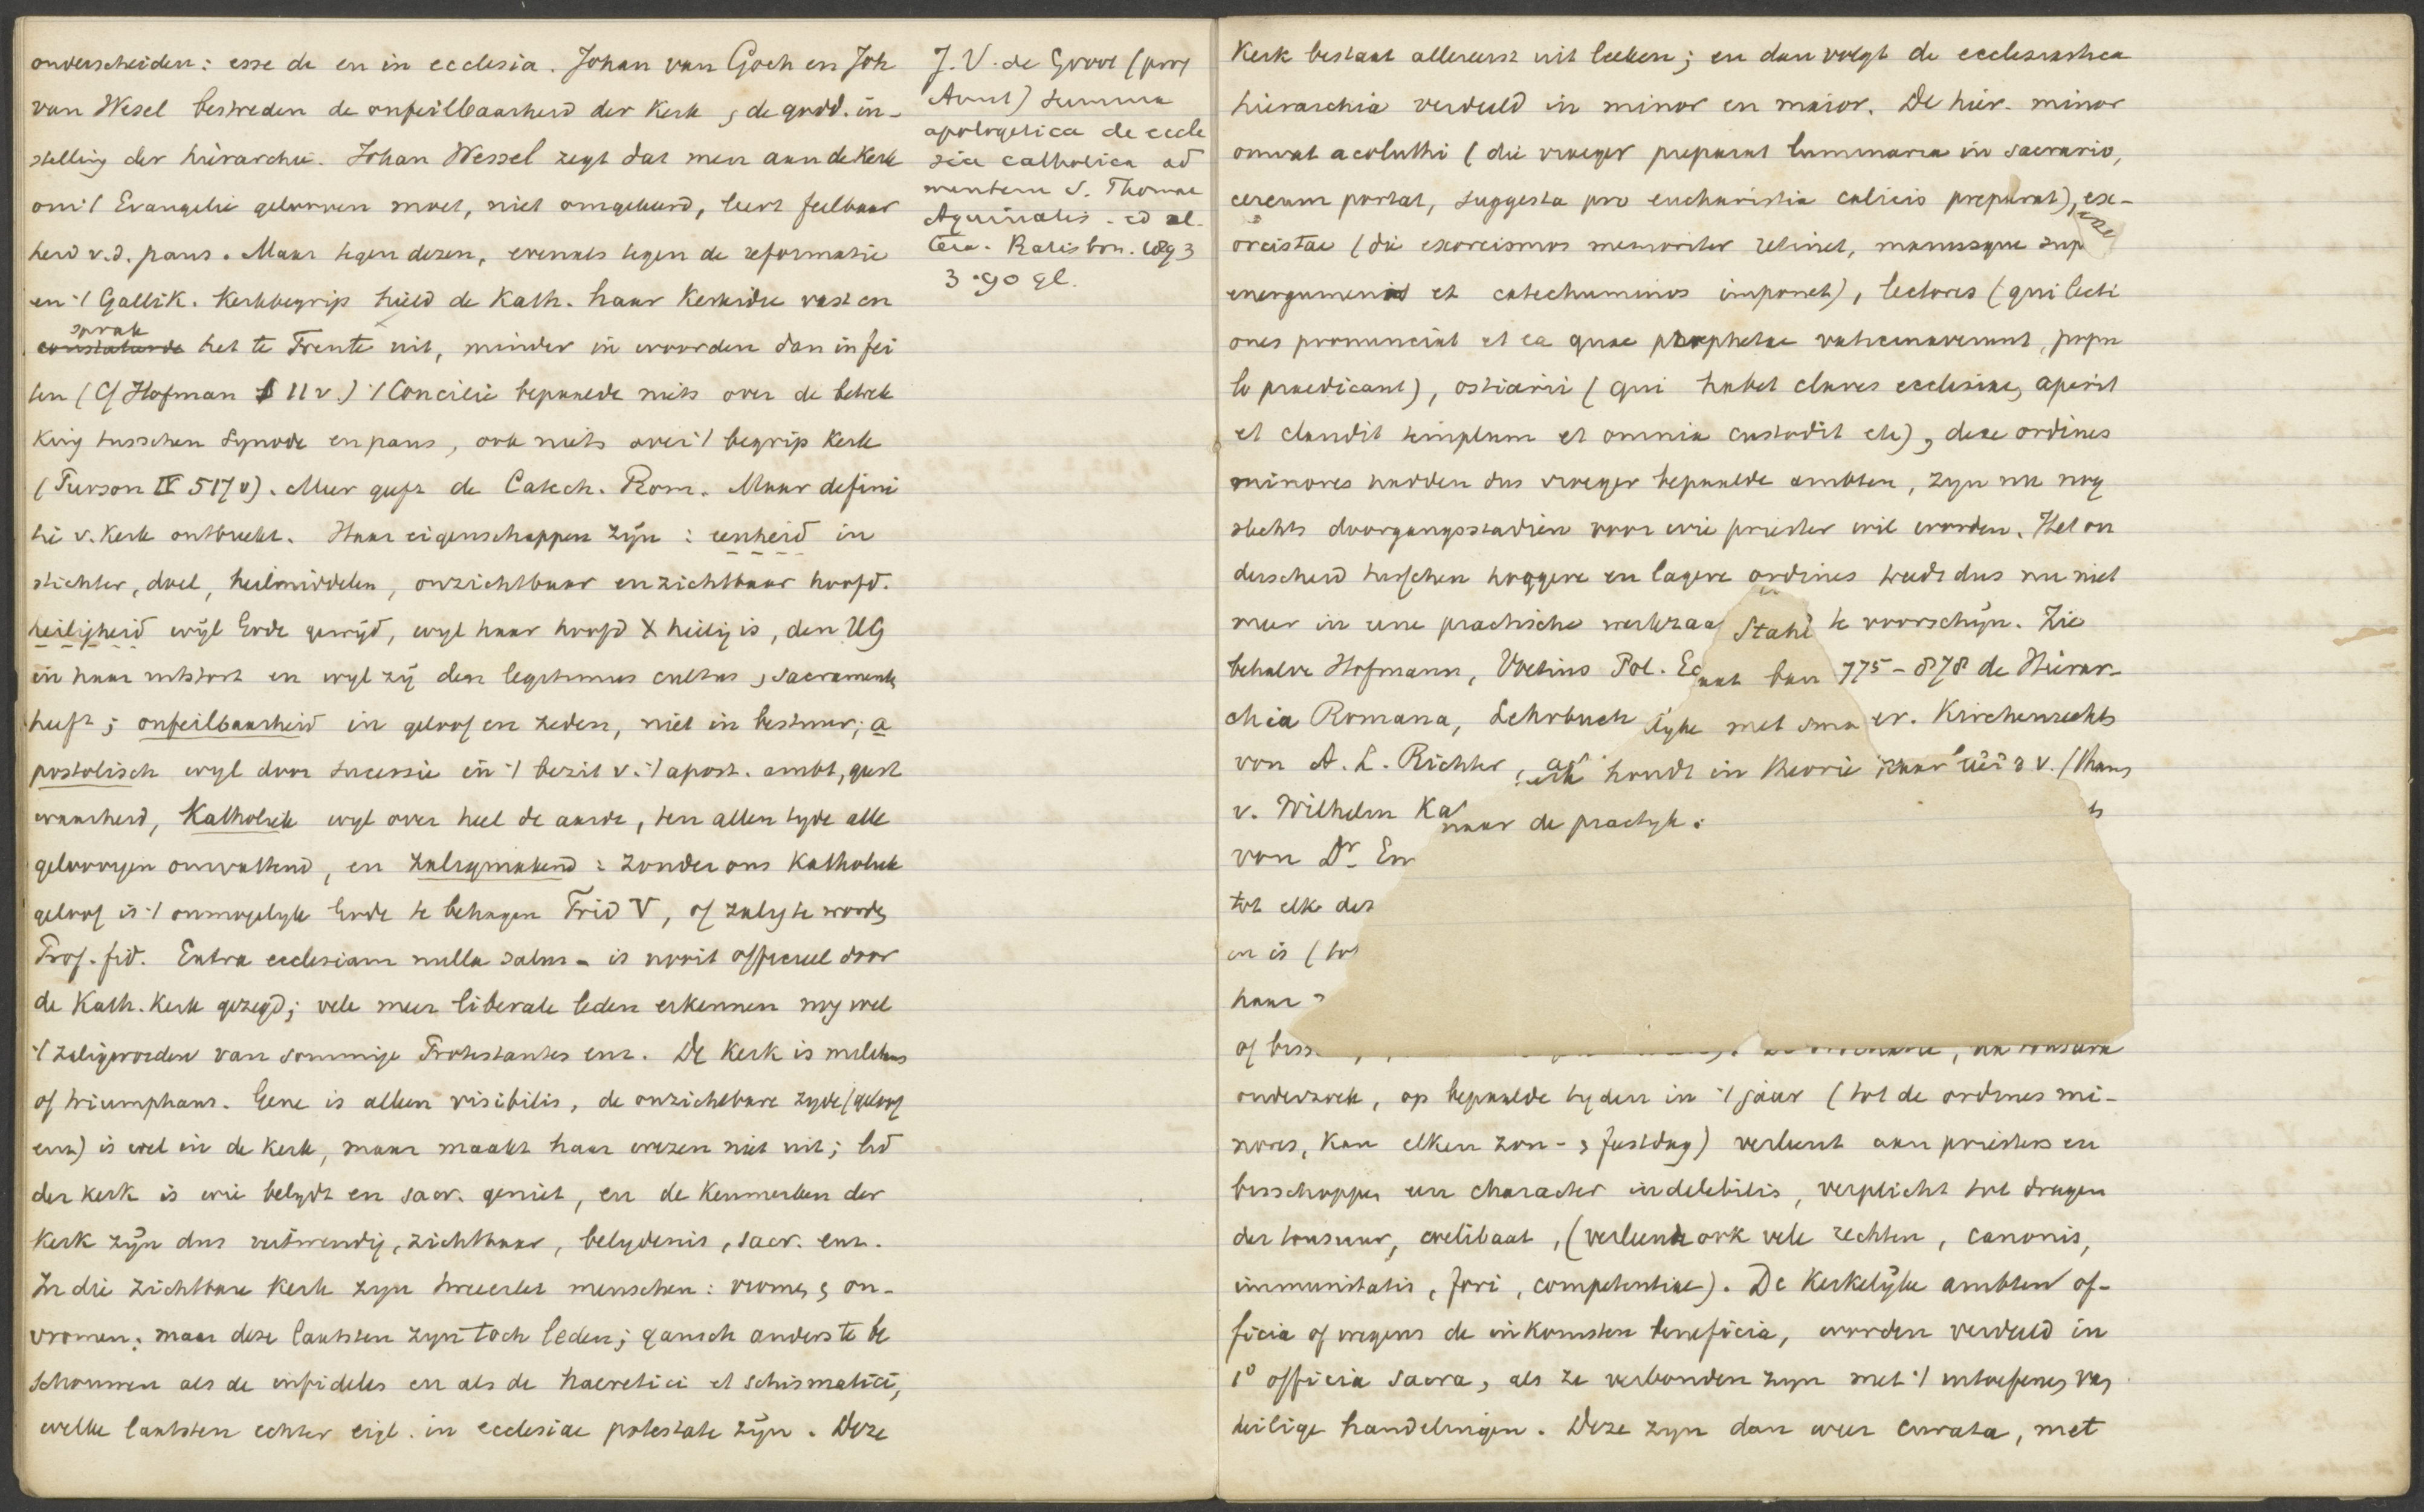 onderscheiden: esse de en in ecclesia. Johan van Goch en Joh
van Wesel bestreden de onfeilbaarheid der Kerk, de godd. in-
stelling der hierarchie. Johan Wessel zegt dat men aan de Kerk
om 't Evangelie gelooven moet, niet omgekeerd, leert feilbaar
heid v.d. paus. Maar tegen dezen, evenals tegen de reformatie
en 't Gallik. Kerkbegrip hield de Kath. haar Kerkidee vast en
sprak
constateerde het te Trente uit, minder in woorden dan in fei
ten (Cf Hofman § 11 v.) 't Concilie bepaalde niets over de betrek
king tusschen Synode en paus, ook niets over 't begrip Kerk
(Turson IV 517 v). Meer geeft de Catech. Rom. Maar defini
tie v. Kerk ontbreekt. Haar eigenschappen zijn: eenheid in
stichter, doel, heilmiddelen, onzichtbaar en zichtbaar hoofd.
heiligheid wijl Gode gewijd, wyl haar hoofd X heilig is, den HG
in haar uitstort en wyl zij den legitimus cultus, sacramenten
heeft; onfeilbaarheid in geloof en zeden, niet in bestuur; a
postolisch wyl door successie in 't bezit v. 't apost. ambt, geest
waarheid, Katholiek wyl over heel de aarde, ten allen tyde alle
geloovigen omvattend, en zaligmakend: zonder ons Katholiek
geloof is 't onmogelyk Gode te behagen Trid V, of zalig te worden
Prof. fid. Extra ecclesiam nulla salus - is nooit officieel door
de Kath. Kerk gezegd; vele meer liberale leden erkennen nog wel
't zaligworden van sommige Protestanten enz. De Kerk is militans
of triumphans. Gene is alleen visibilis, de onzichtbare zyde (geloof
enz) is wel in de Kerk, maar maakt haar wezen niet uit; lid
der kerk is wie belydt en sacr. geniet, en de Kenmerken der
Kerk zijn dus uitwendig, zichtbaar, belydenis, sacr. enz.
In die zichtbare Kerk zyn tweeerlei menschen: vromen, on-
vromen; maar deze laatsten zyn toch leden; gansch anders te be
schouwen als de infideles en als de haeretici et schismatici,
welke laatsten echter eigl. in ecclesiae potestate zijn. Deze
J. V. de Groot (prof
Amst) Summa
apologetica de eccle
sia catholica ad
mentem S. Thomae
Aquinatis. ed al-
tera. Ratisbon. 1893
3.90 gl.
Kerk bestaat allereerst uit leeken; en dan volgt de ecclesiastica
hierarchia verdeeld in minor en maior. De hier. minor
omvat acoluthi (die vroeger preparat luminaria in sacrario,
cereum portat, suggesta pro eucharistia calicis preparat), ex-
orcistae (die exorcismos memoriter retinet, manusque sup
energumenos et catechuminos imponet), lectores (qui lecti
ones pronunciat et ea quae prophetae vaticinaverunt, popu
lo praedicant), ostiarii (qui habet claves ecclesiae, aperit
et claudit templum et omnia custodit etc), deze ordines
minores hadden dus vroeger bepaalde ambten, zyn nu nog
slechts doorgangsstadien voor wie priester wil worden. Het on
derscheid tusschen hoogere en lagere ordines treedt dus nu niet
meer in eene practische werkzaa Stahl te voorschijn. Zie
behalve Hofmann, Voetius Pol. Ec 775-878 de Hierar-
chia Romana, Lehrbuch met Kirchenrechts
von A. L. Richter, houdt in theorie
v. Wilhelm Ka naar de practyk.
von Dr. Em
tot elk der
en is (tot
haar
of biss
onderzoek, op bepaalde tyden in 't jaar (tot de ordines mi-
nores, Kan elken zon- & feestdag) verleent aan priesters en
bisschoppen een character indelebilis, verplicht tot dragen
der tonsuur, coelibaat, (verleent ook vele rechten, canonis,
immunitatis, fori, competentiae). De Kerkelijke ambten of-
ficia of wegens de inkomsten beneficia, worden verdeeld in
1° officia sacra, als ze verbonden zyn met 't uitoefenen van
heilige handelingen. Deze zyn dan weer curata, met